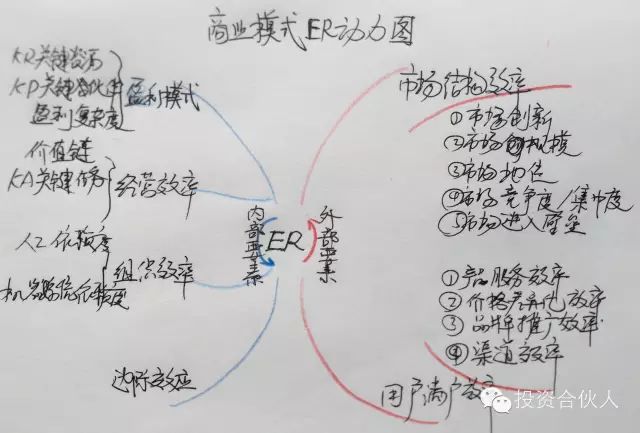 商业模式ER动力图
KR关键资源
KP关键
盈利复杂度
盈利模式
价值链
KA关键任务
经营效率
人工依赖度
机器智能化程度
组织效率
边际效应
内部要素
ER
外部要素
市场结构效率
①市场创新
②市场规模
③市场地位
④市场竞争度/集中度
⑤市场进入壁垒
①产品服务效率
②价格差异化效率
③品牌推广效率
④渠道效率
用户
投资合伙人